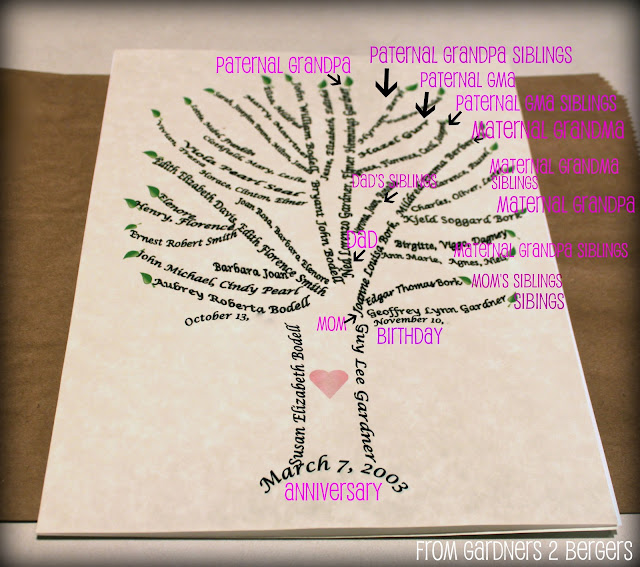 Paternal Grandpa
Paternal Grandpa Siblings
Paternal Gma
Paternal Gma Siblings
Maternal Grandma
Maternal Grandma
Siblings
Maternal Grandpa
Maternal Grandpa Siblings
Mom's Siblings
Sibings
Dad's Siblings
Dad
Mom
Birthday
Viola Pearl Seal
Horace, Clinton, Elmer
Edith Elizabeth Davis
Elenore
Henry, Florence
Ernest Robert Smith
Edith Florence Smith
Joan Rose, Barbara Elenore
Barbara Joan
John Michael Cindy Pearl
Aubrey Roberta Bodell
October 13,
Bryant John Bodell
Ned Lorenzo Gardner
Elmer Hemming Gardner
Hazel Gunn
Charles, Oliver,
Kjeld Soggard Bork
Birgitte, Viggo, Dagney
Ann Marie, Agnes,
Joanne Louise Bork
Edgar Thomas Bork
Geoffrey Lynn Gardner
November 10,
Susan Elizabeth Bodell
Guy Lee Gardner
March 7, 2003
Anniversary
From Gardners 2 Bergers